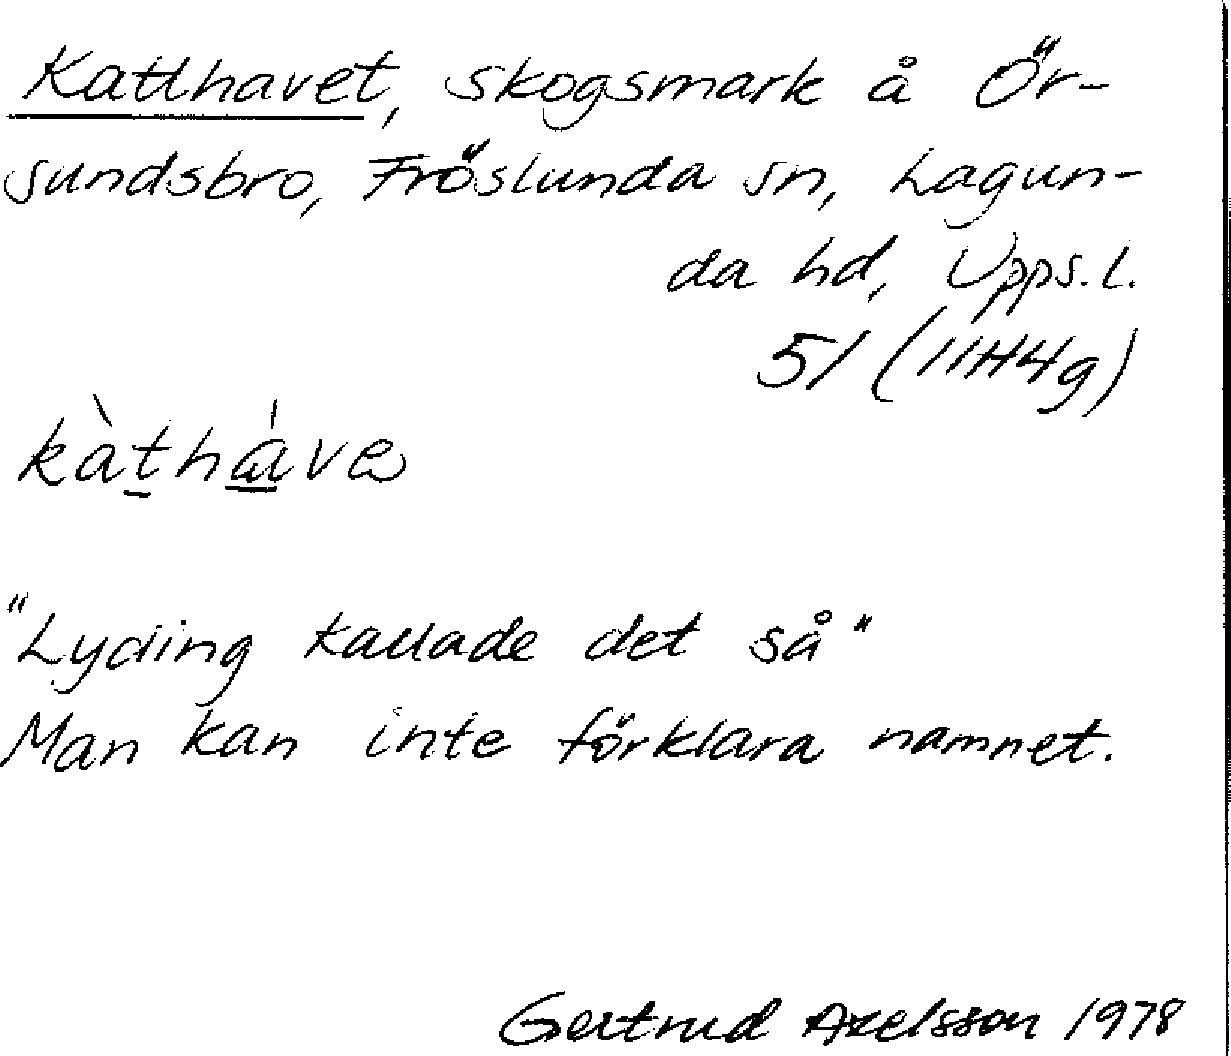 Katthavet, skogsmark å Ör-
sundsbro, Fröslunda sn, Lagun-
da hd, Upps.l.
51 (11H4g)
kàtháve
"Lyding kallade det så"
Man kan inte förklara namnet.
Gertrud Axelsson 1978